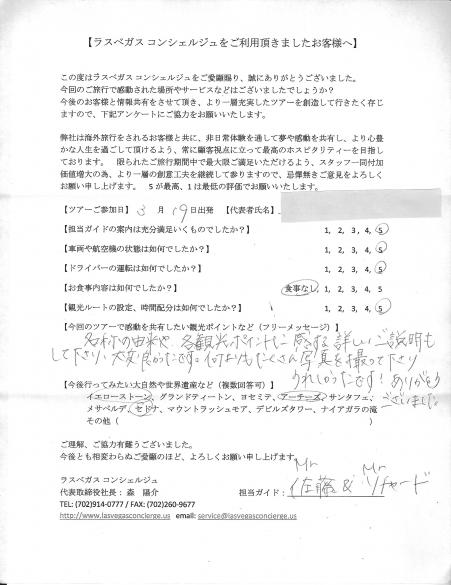 【ラスベガス コンシェルジュをご利用頂きましたお客様へ】
この度はラスベガス コンシェルジュをご愛顧賜り、誠にありがとうございました。
今回のご旅行で感動された場所やサービスなどはございましたでしょうか?
今後のお客様と情報共有をさせて頂き、より一層充実したツアーを創造して行きたく存じ
ますので、下記アンケートにご協力をお願いいたします。
弊社は海外旅行をされるお客様と共に、非日常体験を通して夢や感動を共有し、より心豊
かな人生を過ごして頂けるよう、常に顧客視点に立って最高のホスピタリティーを目指し
ております。 限られたご旅行期間中で最大限ご満足いただけるよう、スタッフ一同付加
価値増大の為、より一層の創意工夫を継続して参りますので、忌憚無きご意見をよろしく
お願い申し上げます。 5が最高、1は最低の評価でお願いいたします。
【ツアーご参加日】 3月 19日出発 【代表者氏名】
【担当ガイドの案内は充分満足いくものでしたか?】 1, 2, 3, 4, 5
【車両や航空機の状態は如何でしたか?】 1, 2, 3, 4, 5
【ドライバーの運転は如何でしたか?】 1, 2, 3, 4, 5
【お食事内容は如何でしたか?】 食事なし, 1, 2, 3, 4, 5
【観光ルートの設定、時間配分は如何でしたか?】 1, 2, 3, 4, 5
【今回のツアーで感動を共有したい観光ポイントなど(フリーメッセージ)】
名称の由来や各観光ポイントに関する詳しいご説明も
して下さり大変良かったです。何よりもたくさん写真を撮って下さり
うれしかったです!ありがとう
ございました
【今後行ってみたい大自然や世界遺産など(複数回答可)】
イエローストーン、グランドティートン、ヨセミテ、アーチーズ、サンタフェ、
メサベルデ、セドナ、マウントラッシュモア、デビルズタワー、ナイアガラの滝
その他 (
ご理解、ご協力有難うございました。
今後とも相変わらぬご愛顧のほど、よろしくお願い申し上げます。
ラスベガス コンシェルジュ
代表取締役社長:森 陽介 担当ガイド: Mr 佐藤 & Mr リチャード
TEL: (702)914-0777 / FAX: (702)260-9677
http://www.lasvegasconcierge.us email: service@lasvegasconcierge.us